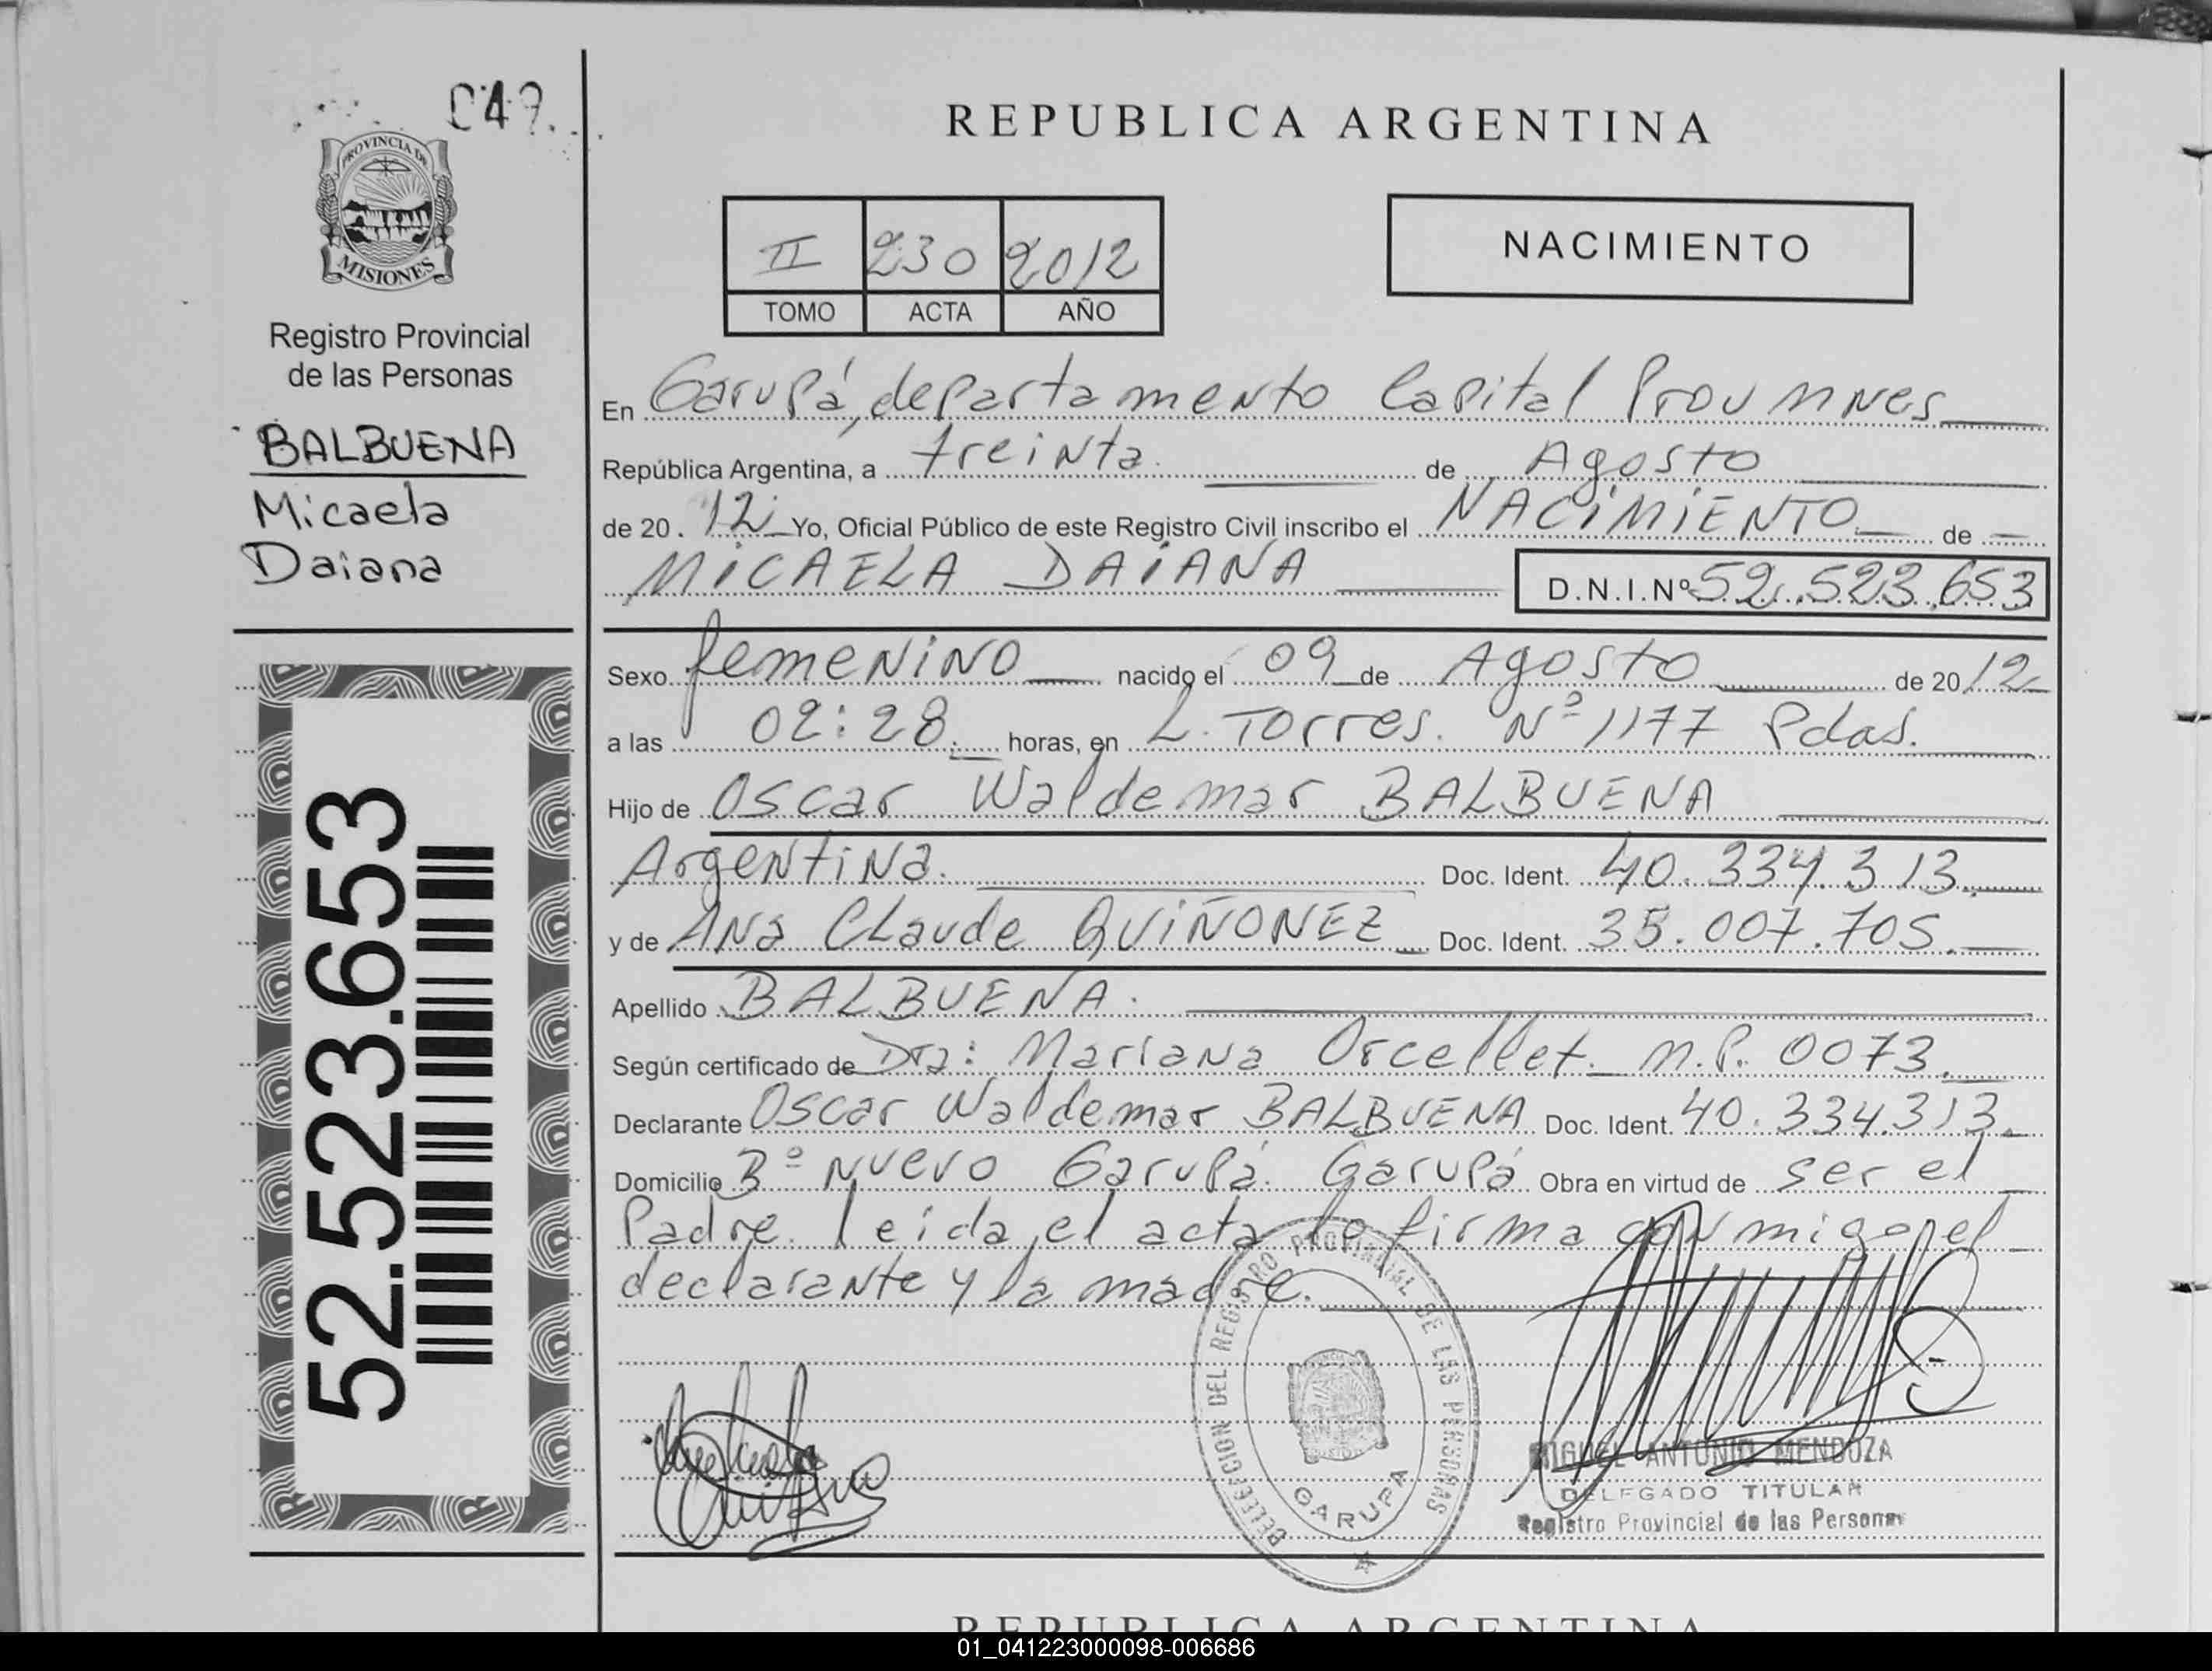 049
PROVINCIA DE
MISIONES
Registro Provincial
de las Personas
BALBUENA
Micaela
Daiana
52.523.653
REPUBLICA ARGENTINA
II 230 2012
TOMO ACTA AÑO
NACIMIENTO
En Garupá, departamento Capital Prov Mnes
República Argentina, a treinta de Agosto
de 20. 12 Yo, Oficial Público de este Registro Civil inscribo el NACIMIENTO de
MICAELA DAIANA D.N.I.Nº 52.523.653
Sexo femenino nacido el 09 de Agosto de 20 12
a las 02:28 horas, en L. Torres. Nº 1177 Pdas.
Hijo de Oscar Waldemar BALBUENA
Argentina. Doc. Ident. 40.334.313
y de Ana Claude QUIÑONEZ Doc. Ident. 35.007.705
Apellido BALBUENA.
Según certificado de Dra: Mariana Orcellet. M.P. 0073.
Declarante Oscar Waldemar BALBUENA Doc. Ident. 40.334.313
Domicilio Bº Nuevo Garupá. Garupá Obra en virtud de ser el
Padre. leida el acta lo firma conmigo el
declarante y la madre.
DELEGACION DEL REGISTRO PROVINCIAL DE LAS PERSONAS
GARUPA
MIGUEL ANTONIO MENDOZA
DELEGADO TITULAR
Registro Provincial de las Personas
REPUBLICA ARGENTINA
01_041223000098-006686